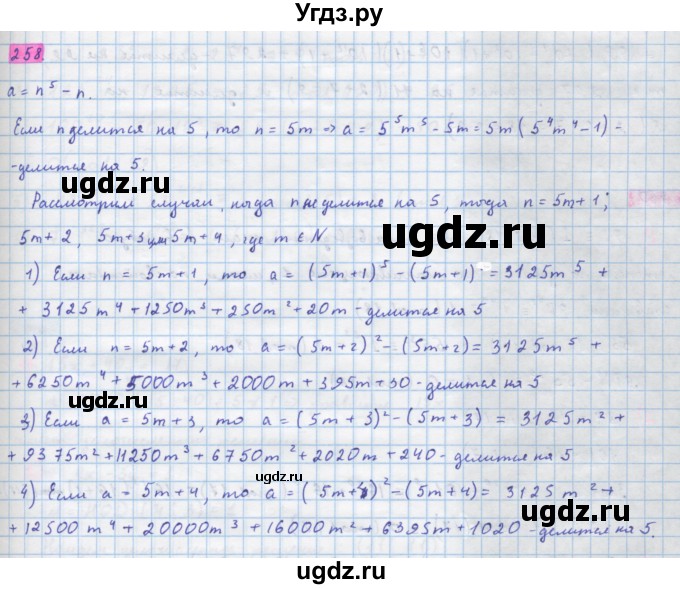 Угзу.ру
258.
a = n⁵ - n.
Если n делится на 5, то n = 5m ⇒ a = 5⁵m⁵ - 5m = 5m(5⁴m⁴-1) -
-делится на 5.
ugdz.ru
ugdz.ru
Рассмотрим случаи, когда n не делится на 5, тогда n = 5m+1;
5m+2, 5m+3 или 5m+4, где m ∈ N
1) Если n = 5m+1, то a = (5m+1)⁵ - (5m+1) = 3125m⁵ +
+ 3125m⁴ + 1250m³ + 250m² + 20m - делится на 5
ugdz.ru
2) Если n = 5m+2, то a = (5m+2)² - (5m+2) = 3125m⁵ +
+6250m⁴ + 5000m³ + 2000m + 395m + 30 - делится на 5
ugdz.ru
3) Если a = 5m+3, то a = (5m+3)² - (5m+3) = 3125m² +
+ 9375m² + 11250m³ + 6750m² + 2020m + 240 - делится на 5
ugdz.ru
4) Если a = 5m+4, то a = (5m+4)² - (5m+4) = 3125m² +
+12500m⁴ + 20000m³ + 16000m² + 6395m + 1020 - делится на 5.
ugdz.ru
ugdz.ru